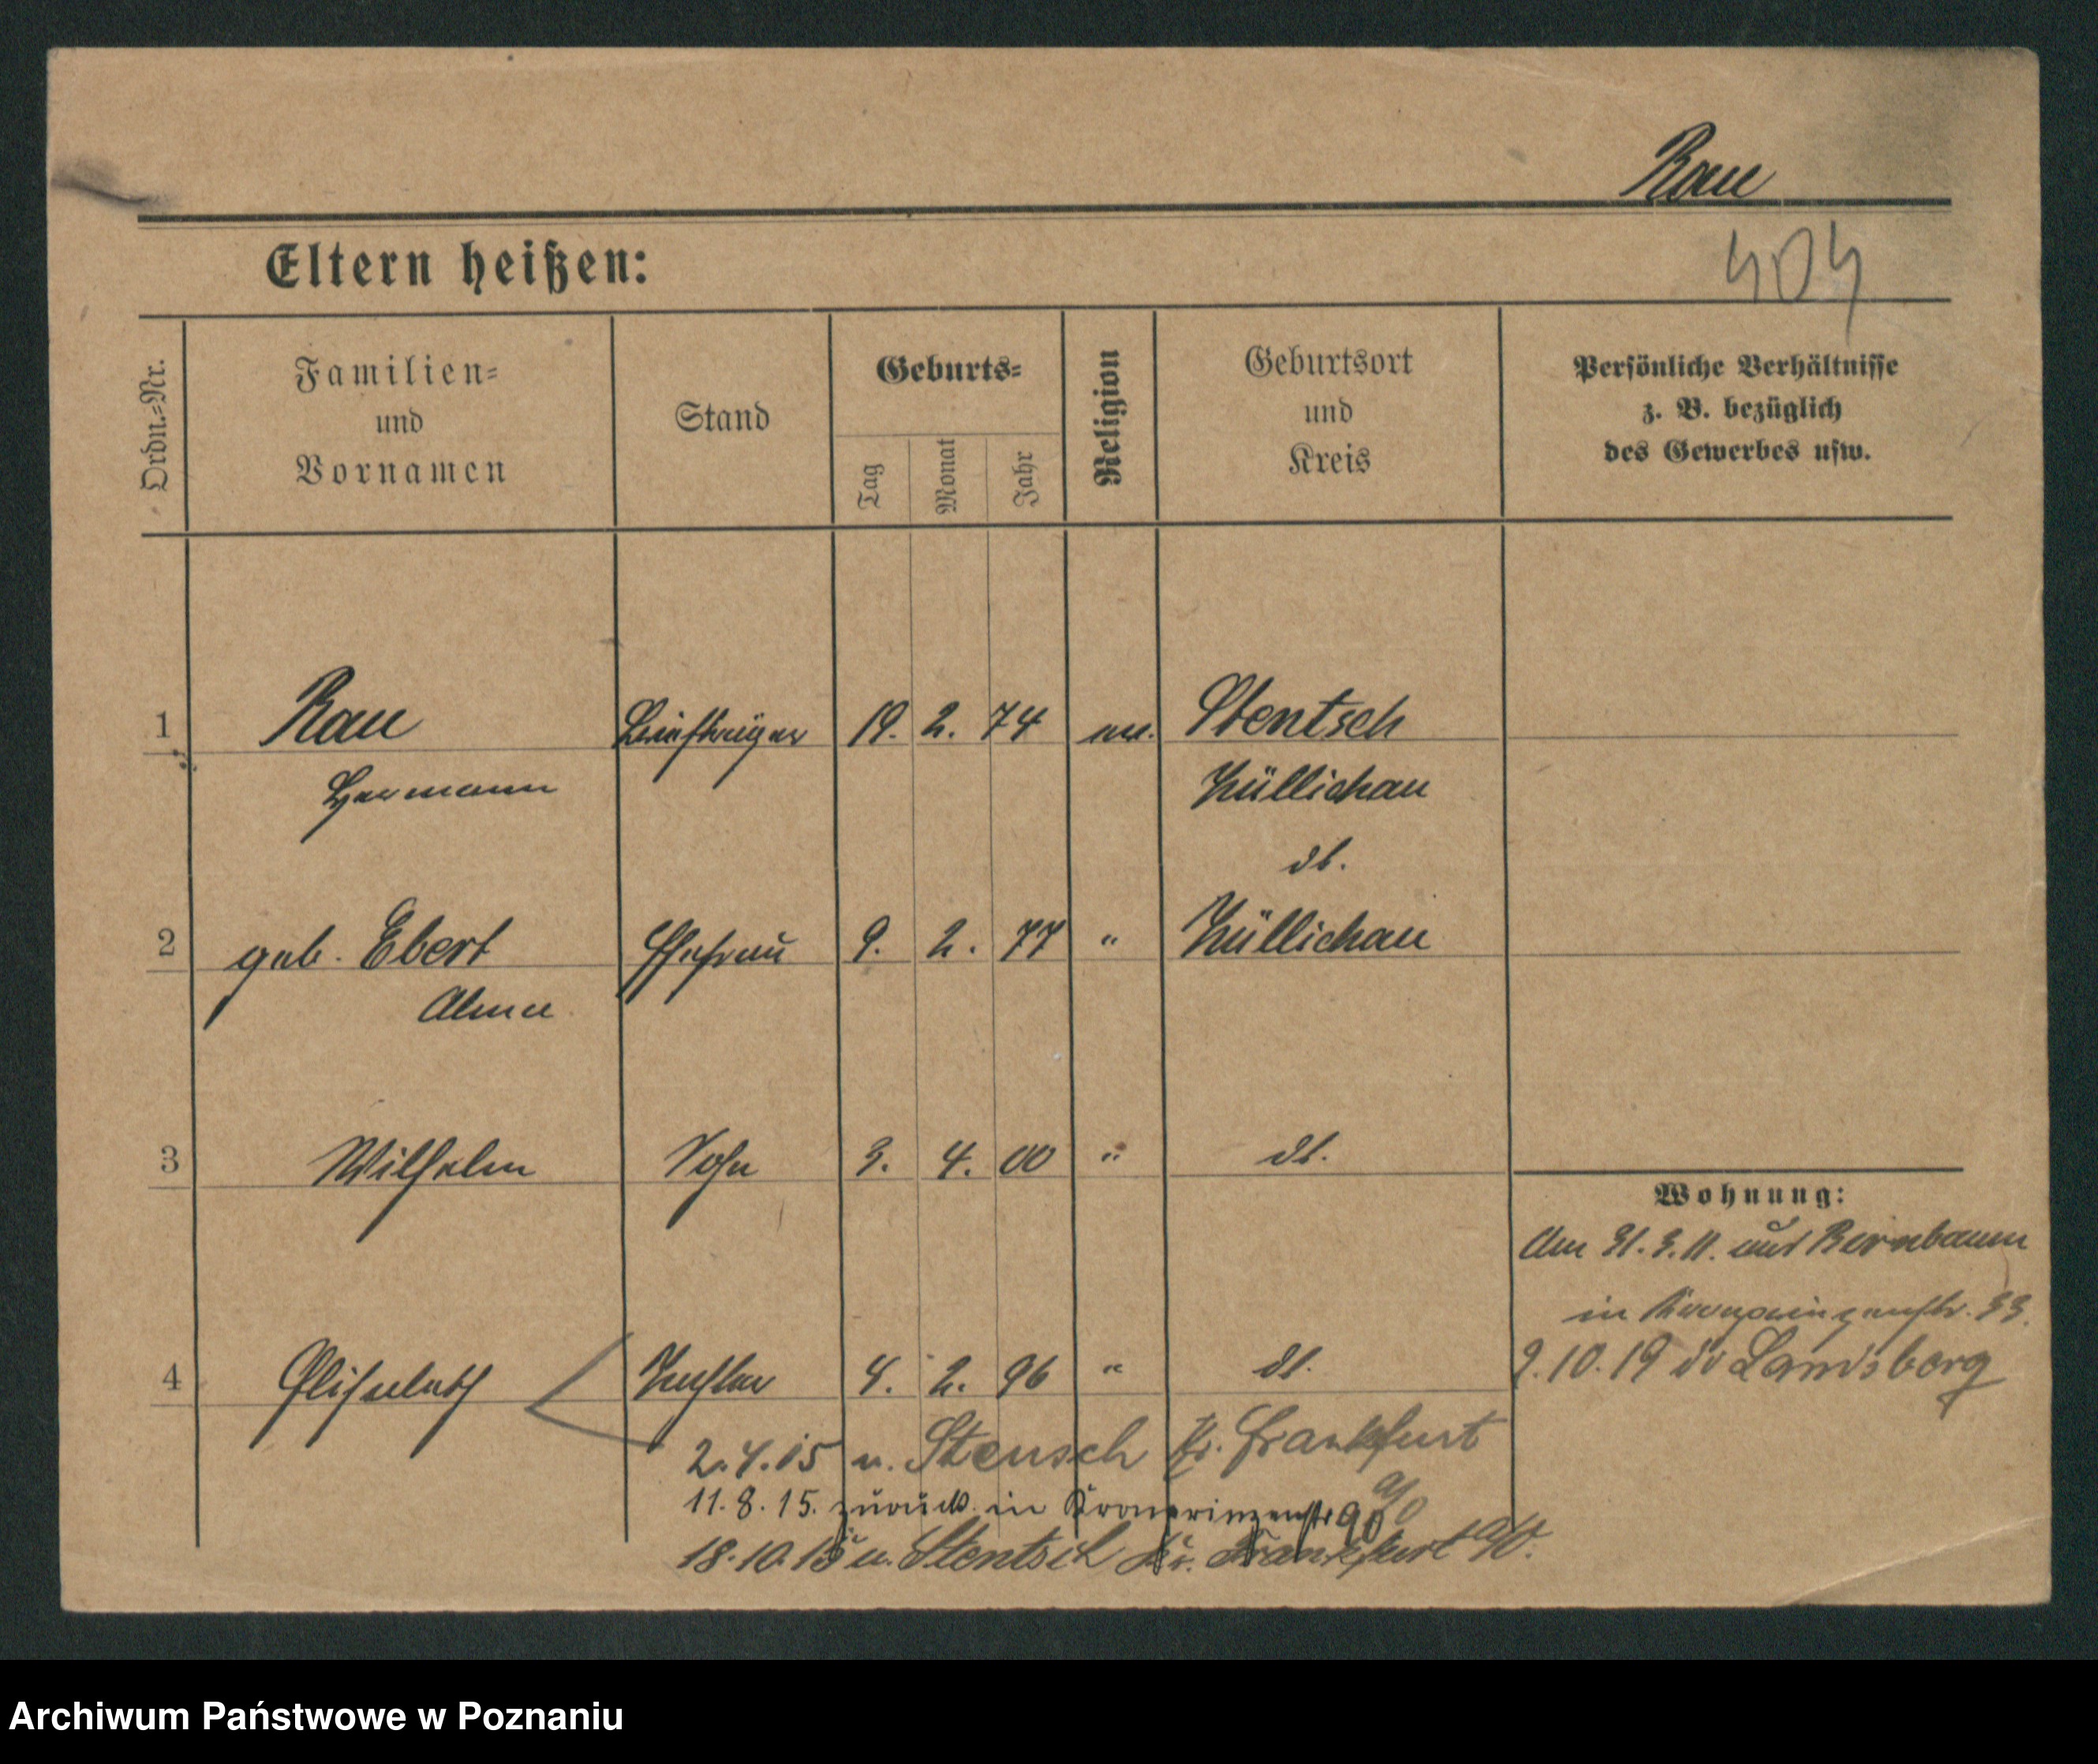 Rau
Eltern heißen:
404
Ordn.=Nr.
Familien=
und
Vornamen
Stand
Geburts=
Tag
Monat
Jahr
Religion
Geburtsort
und
Kreis
Persönliche Verhältnisse
z. B. bezüglich
des Gewerbes usw.
1 Rau Briefträger 19. 2. 74 ev. Stentsch
Hermann Züllichau
do.
2 geb. Ebert Ehefrau 9. 2. 77 " Züllichau
Alma
3 Wilhelm Sohn 3. 4. 00 " do.
Wohnung:
Am 31.3.11. aus Birnbaum
in Kronprinzenstr. 33.
2.10.19 Landsberg
4 Elisabeth Tochter 4. 2. 96 " do.
2.4.15 n. Stensch Kr. Frankfurt
a/O
11.8.15. zurück in Kronprinzenstr 90
18.10.15 n. Stentsch Kr. Frankfurt a/O.
Archiwum Państwowe w Poznaniu